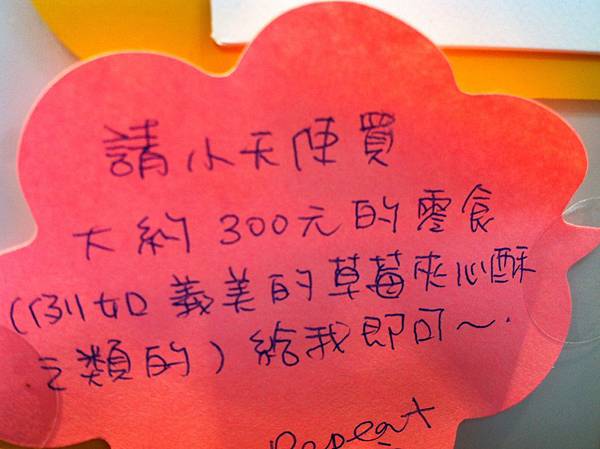 請小天使買
大約300元的零食
(例如義美的草莓夾心酥
之類的)給我即可～.